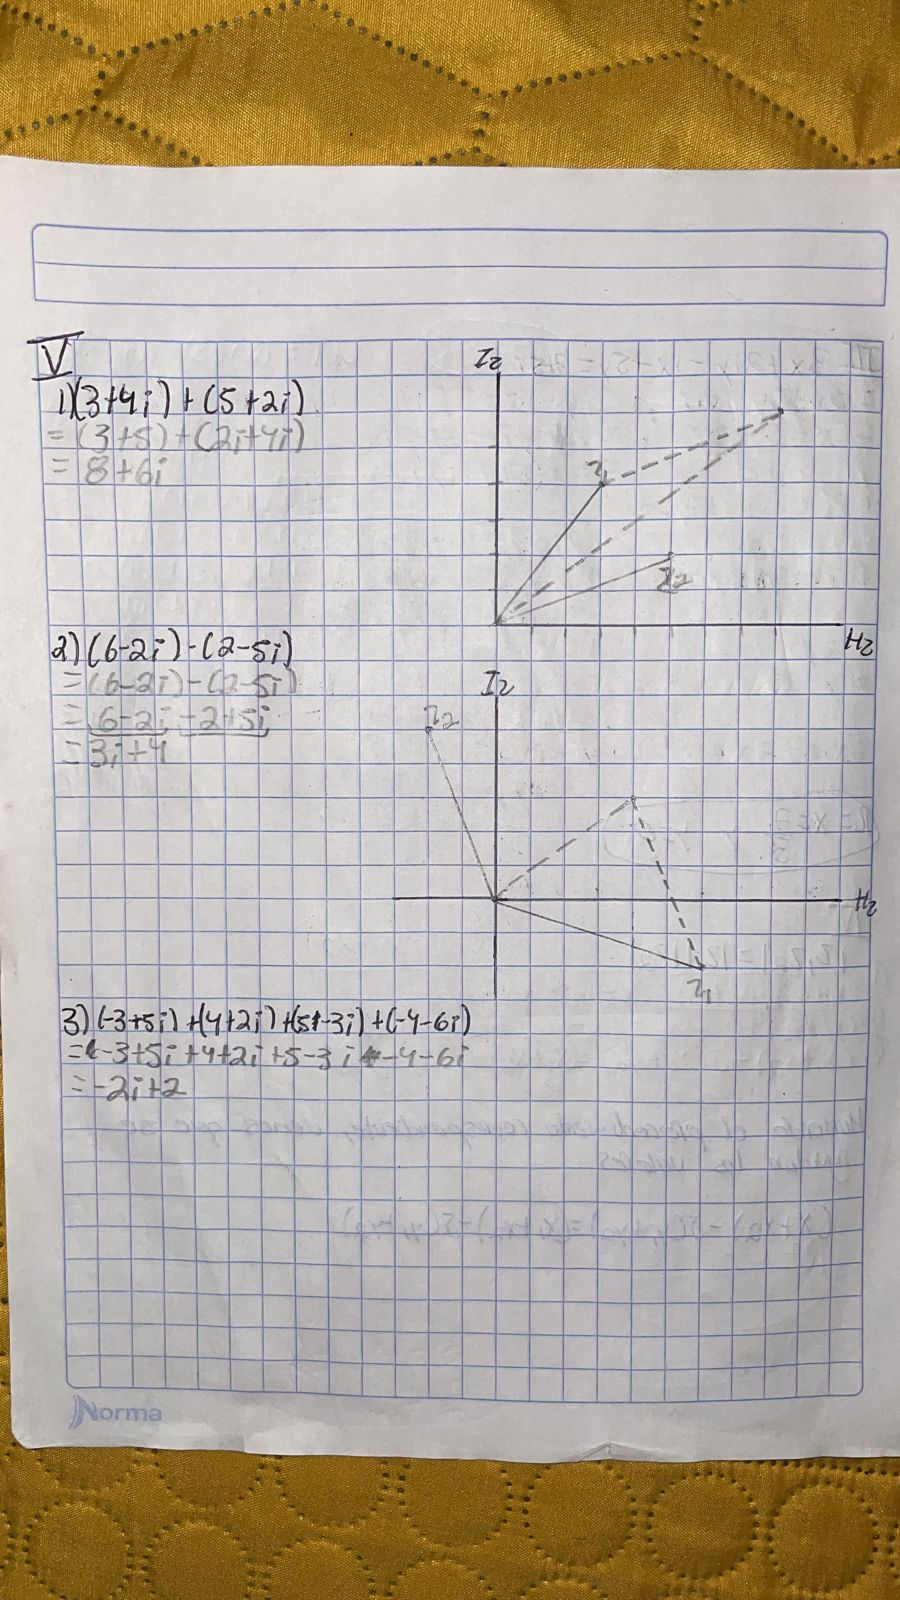 V
1)(3+4i)+(5+2i)
= (3+5)+(2i+4i)
= 8+6i
Iz
z1
z2
Hz
2) (6-2i)-(2-5i)
= (6-2i)-(2-5i)
= 6-2i -2+5i
= 3i+4
Iz
z2
Hz
z1
3) (-3+5i)+(4+2i)+(5-3i)+(-4-6i)
= -3+5i+4+2i+5-3i-4-6i
= -2i+2
Norma